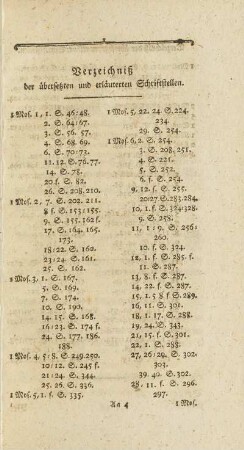 Verzeichniß
der übersetzten und erläuterten Schriftstellen.
1 Mos. 1, 1. S. 46:48.
2. S. 64:67.
3. S. 56. 57.
4. S. 68. 69.
6. S. 70:73.
11.12. S. 76.77.
14. S. 78.
20 f. S. 82.
26. S. 208, 210.
1 Mos. 2, 7. S. 202. 211.
8 f. S. 153:155.
9. S. 155. 162 f.
17. S. 164. 165.
173.
18:22. S. 160.
23:24. S. 161.
25. S. 162.
1 Mos. 3, 1. S. 167.
5. S. 169.
7. S. 174.
10. S. 190.
14. 15. S. 168.
16:23. S. 174 f.
24. S. 177. 186.
188.
1 Mos. 4, 5:8. S. 249.250.
10:12. S. 245 f.
21:24. S. 344.
25. S. 336.
1 Mos. 5, 1. f. S. 335.
1 Mos. 5, 22. 24. S. 224.
234.
29. S. 254.
1 Mos. 6, 2. S. 254.
3. S. 208, 251.
4. S. 221.
5. S. 252.
6. f. S. 254.
9:12. S. 255.
20:27. S. 283. 284.
1 Mos. 10, f. S. 324:328.
9. S. 258.
11, 1:9. S. 256:
260.
10. f. S. 304.
12, 1. f. S. 285. f.
11. S. 287.
13, 8. f. S. 287.
14, 2. f. S. 287.
15, 1. 5 8 f. S. 289.
18, 1. S. 303.
19, 24. S. 343.
21, 15. f. S. 301.
22, 1. S. 288.
27, 26:29. S. 302.
303.
39. 40. S. 302.
28:11. f. S. 296.
297.
Aa 4
1 Mos.